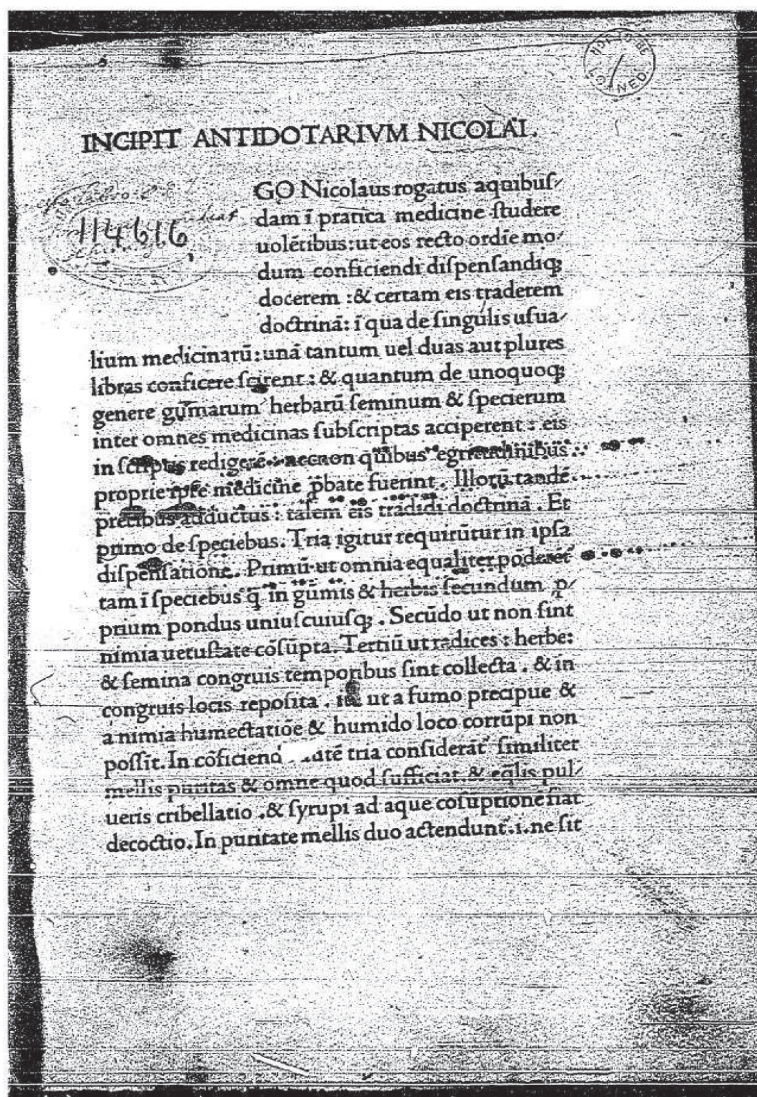 INCIPIT ANTIDOTARIVM NICOLAI.
114616
GO Nicolaus rogatus aquibuſ/
dam ĩ pratica medicine ſtudere
uolẽtibus:ut eos recto ordĩe mo/
dum conficiendi diſpenſandiq;
docerem :& certam eis traderem
doctrinã: ĩ qua de ſingulis uſua/
lium medicinarũ:unã tantum uel duas aut plures
libras conficere ſcirent : & quantum de unoquoq;
genere gũmarum herbarũ ſeminum & ſpecierum
inter omnes medicinas ſubſcriptas acciperent : eis
in ſcriptus redigerẽ: necnon quibus egritudinibus
proprie ipſe medicine ꝓbate fuerint. Illorũ tandẽ
precibus adductus : talem eis tradidi doctrinã . Et
primo de ſpeciebus. Tria igitur requirũtur in ipſa
diſpenſatione. Primũ ut omnia equaliter põderet̃
tam ĩ ſpeciebus q̃ in gũmis & herbis ſecundum ꝓ/
prium pondus uniuſcuiuſq; . Secũdo ut non ſint
nimia uetuſtate cõſũpta. Tertiũ ut radices : herbe:
& ſemina congruis temporibus ſint collecta . & in
congruis locis repoſita . ut a fumo precipue &
a nimia humectatiõe & humido loco corrũpi non
poſſit. In cõficiend tria conſiderãt̃ ſimiliter
mellis puritas & omne quod ſufficiat & eq̃lis pul/
ueris cribellatio .& ſyrupi ad aque coſuptione fiat
decoctio. In puritate mellis duo actendunt̃ .i. ne ſit